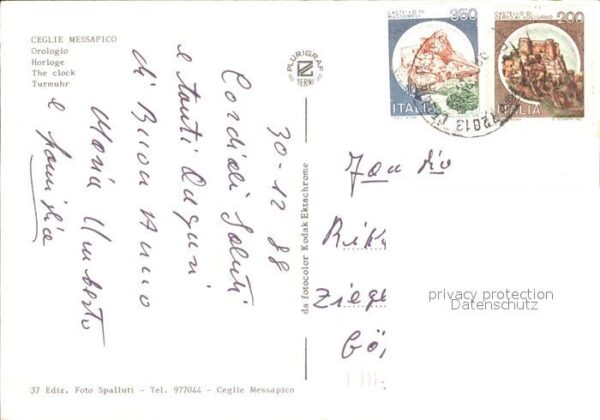 CEGLIE MESSAPICO
Orologio
Horloge
The clock
Turmuhr
30-12 88
Cordiali Saluti
e tanti Auguri
di Buon Anno
Maria Umberto
e famiglia
PLURIGRAF
TERNI
da fotocolor Kodak Ektachrome
CASTELLO DI
MUSSOMELI
650
ITALIA
CASTELLO DI
CERRO AL VOLTURNO
200
ITALIA
72013
Rik
Ziege
Gö
privacy protection
Datenschutz
37 Ediz. Foto Spalluti - Tel. 977044 - Ceglie Messapico